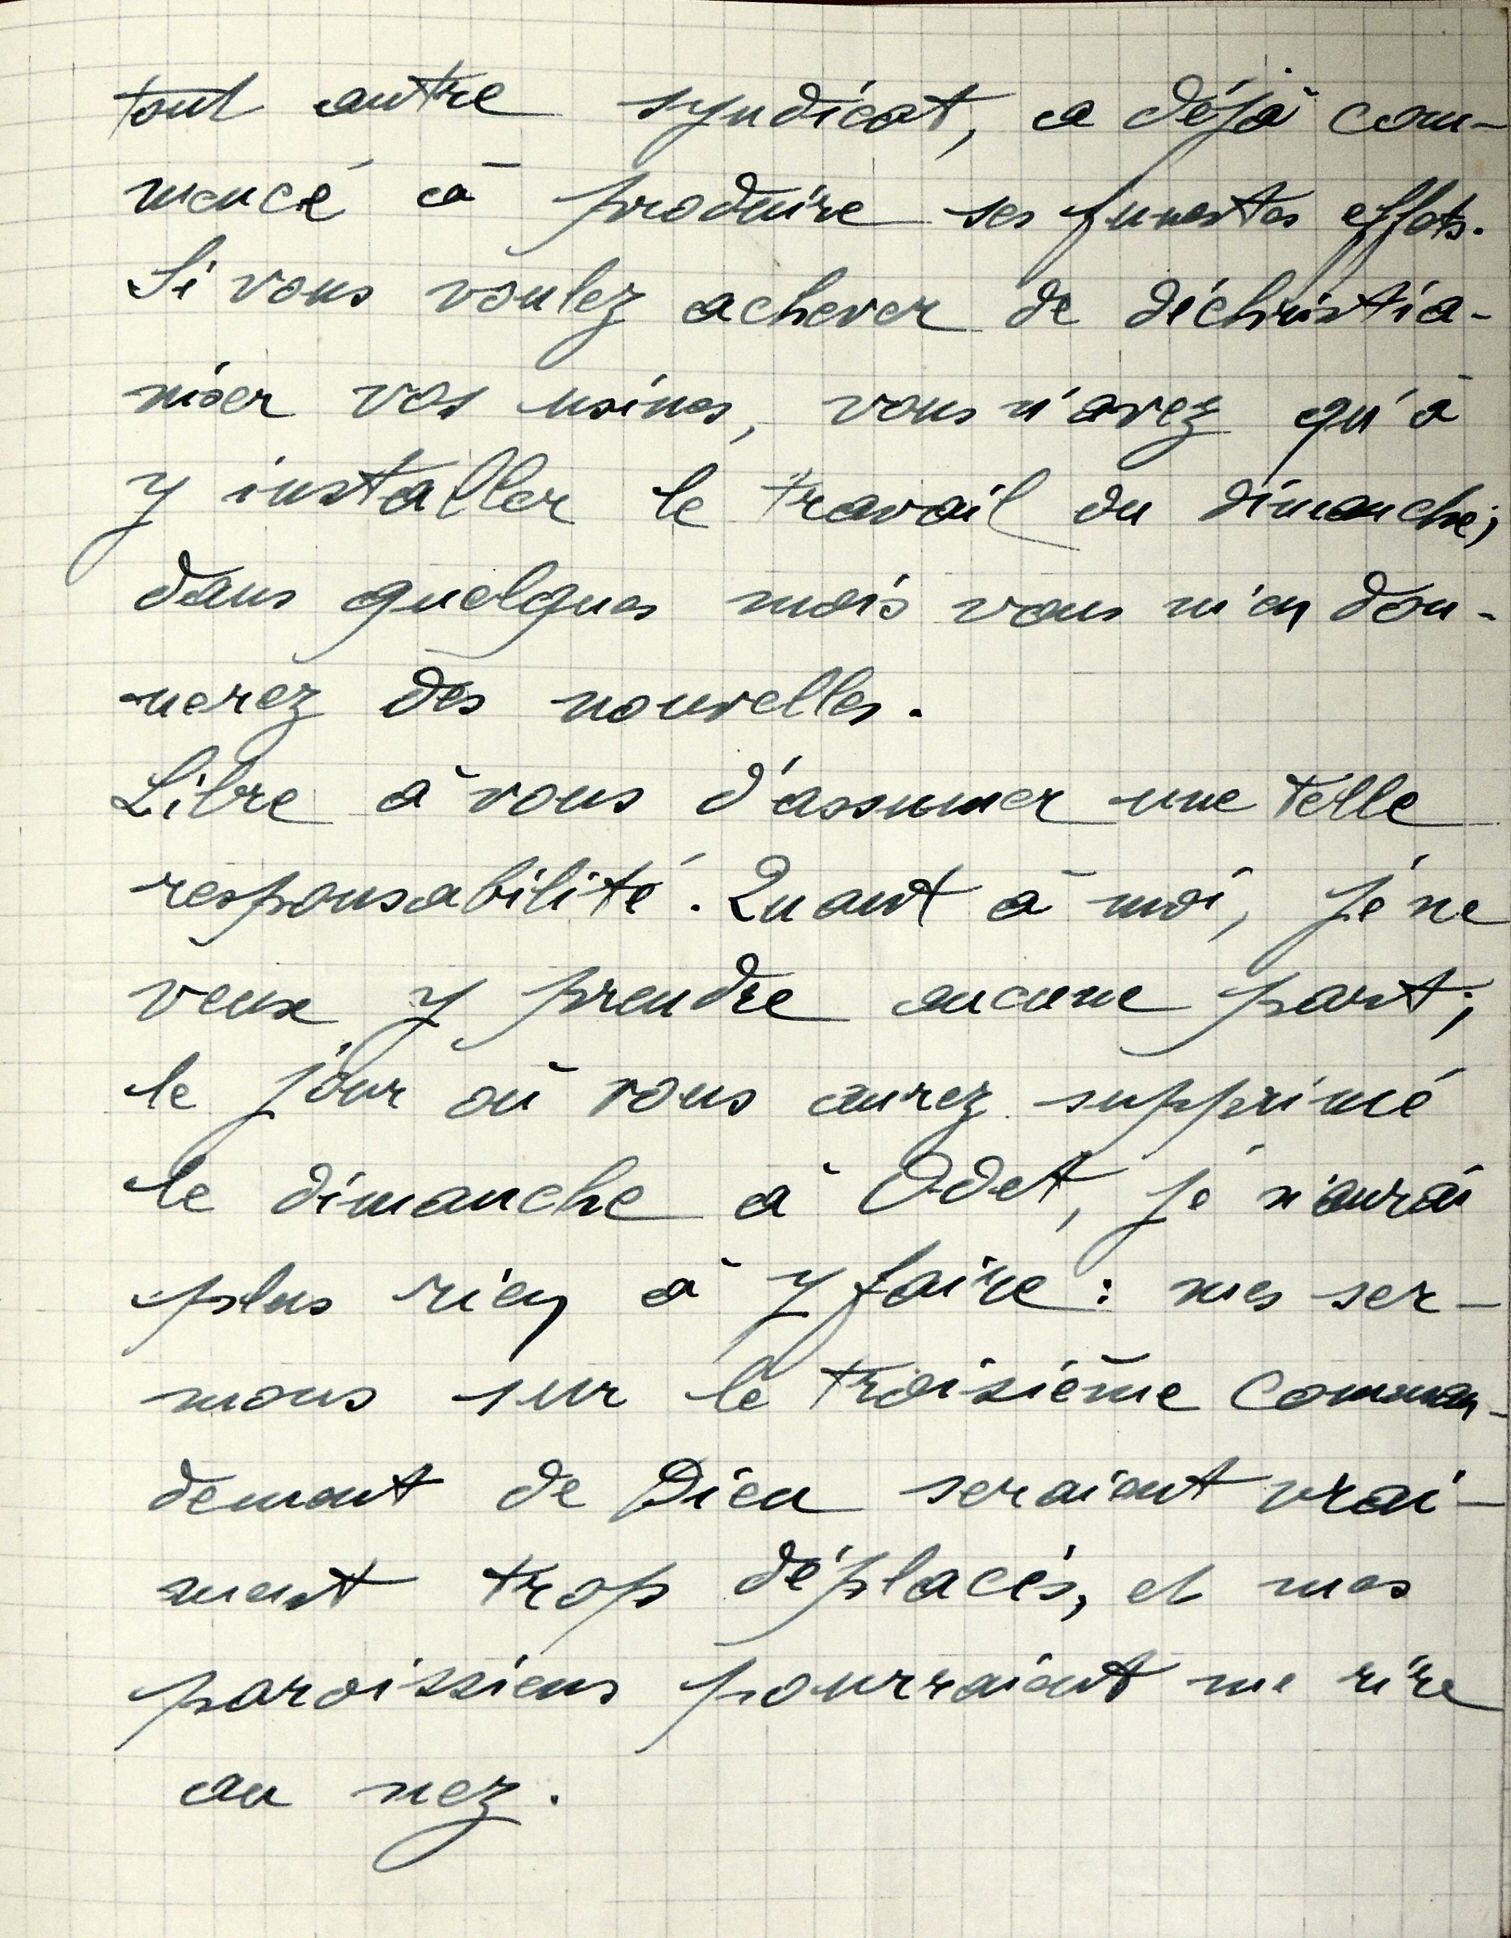 tout autre syndicat, a déjà com-
mencé à produire ses funestes effets.
Si vous voulez achever de déchristia-
niser vos usines, vous n'avez qu'à
y installer le travail du dimanche;
dans quelques mois vous m'en don-
nerez des nouvelles.
Libre à vous d'assumer une telle
responsabilité. Quant à moi, je ne
veux y prendre aucune part;
le jour où vous aurez supprimé
le dimanche à Odet, je n'aurai
plus rien à y faire : mes ser-
mons sur le troisième comman-
dement de Dieu seraient vrai-
ment trop déplacés, et mes
paroissiens pourraient me rire
au nez.